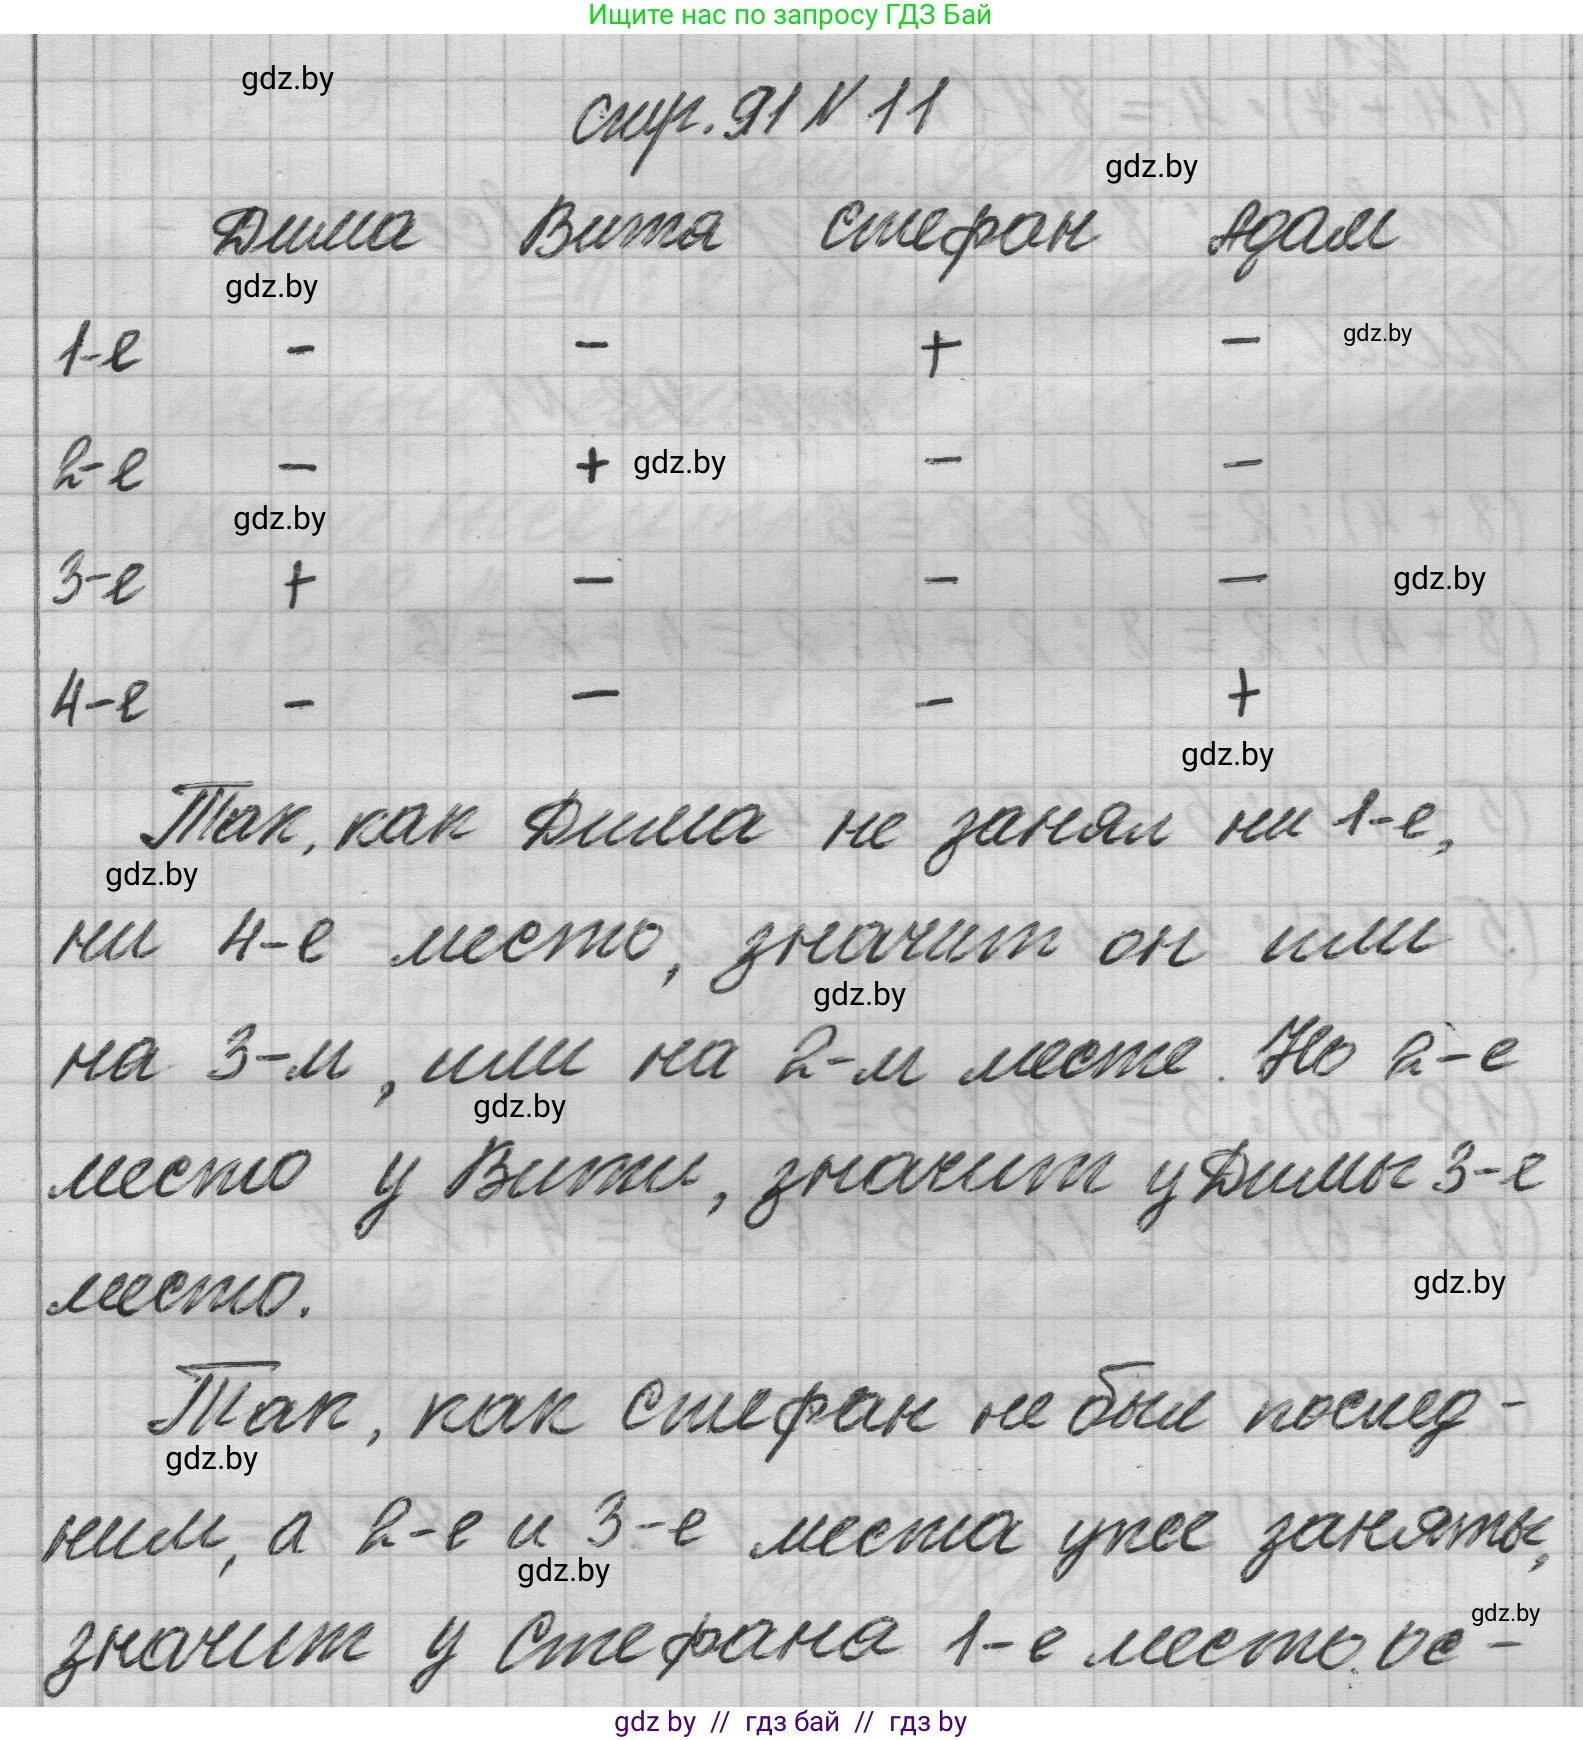 Ищите нас по запросу ГДЗ Бай
gdz.by
стр. 91 № 11
gdz.by
Дима Витя Стефан Адам
gdz.by
1-е - - + - gdz.by
2-е - + gdz.by - -
gdz.by
3-е + - - - gdz.by
4-е - - - +
gdz.by
Так, как Дима не занял ни 1-е,
gdz.by
ни 4-е место, значит он или
gdz.by
на 3-м, или на 2-м месте. Но 2-е
gdz.by
место у Вити, значит у Димы 3-е
место.
gdz.by
Так, как Стефан не был послед-
gdz.by
ним, а 2-е и 3-е места уже заняты,
gdz.by
gdz.by
значит у Стефана 1-е место. Ос-
gdz by // гдз бай // гдз by